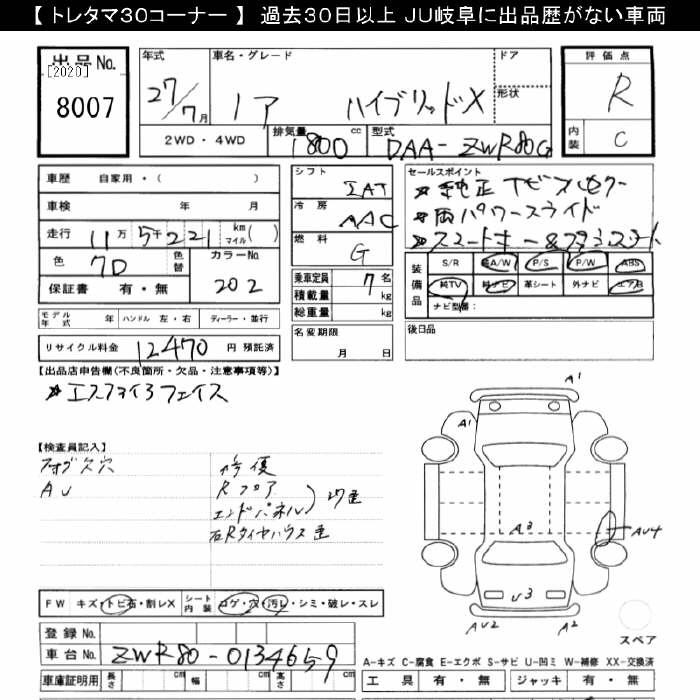 【トレタマ30コーナー】 過去30日以上 JU岐阜に出品歴がない車両
出品No.
[2020]
8007
年式
27/7月
車名・グレード
ノア ハイブリッドX
ドア
形状
評価点
R
内装 C
2WD・4WD
排気量 1800 cc
型式 DAA-ZWR80G
車歴 自家用・( )
車検 年 月
走行 11万5千221 km マイル( )
色 7D 色替
カラーNo 202
保証書 有・無
シフト IAT
冷房 AAC
燃料 G
乗車定員 7名
積載量 kg
総重量 kg
名変期限
月 日
セールスポイント
★純正TV
★両パワースライド
★スマートキー&プッシュスタート
装備品
S/R 純A/W P/S P/W ABS
純TV 純ナビ 革シート 外ナビ エアB
ナビ型番:
後日品
モデル年式 年 ハンドル 左・右 ディーラー・並行
リサイクル料金 12470 円 預託済
【出品店申告欄(不良箇所・欠品・注意事項等)】
★エスファイ3フェイス
【検査員記入】
フォグ欠穴
AU
修復
Rフロア
エンドパネル
右Rタイヤハウス
A1
A1
A3
AU4
U3
AU2
A2
スペア
FW キズ・トビ石・割レX
シート内装 コゲ・穴・汚レ・シミ・破レ・スレ
登録No.
車台No. ZWR80-0134659
車庫証明用 長さ cm 幅 cm 高さ cm
A-キズ C-腐食 E-エクボ S-サビ U-凹ミ W-補修 XX-交換済
工具 有・無 ジャッキ 有・無